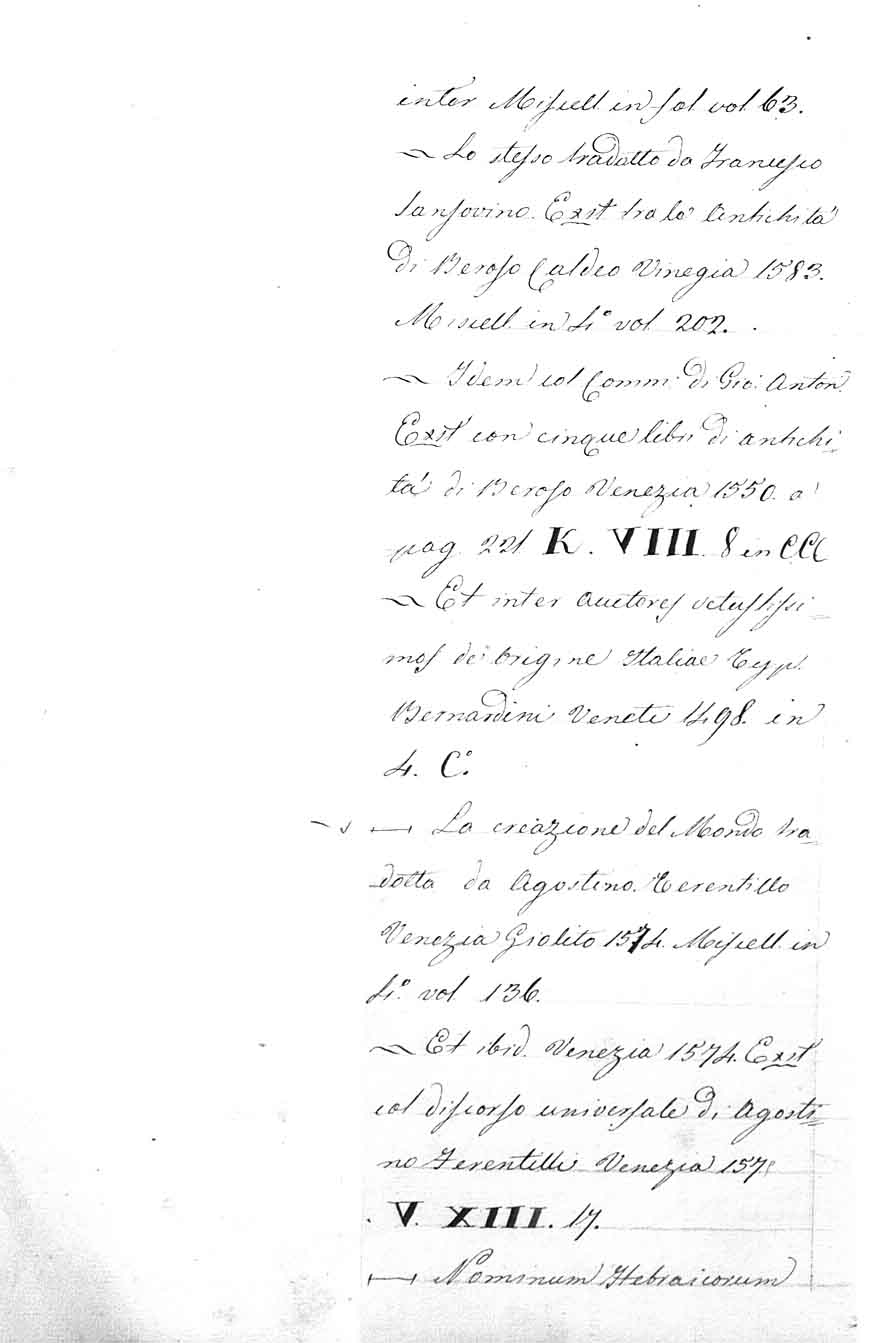 inter Miscell. in fol vol 63.
~ Lo stesso tradotto da Francesco
Sansovino. Exst tra le Antichità
di Beroso Caldeo Vinegia 1583.
Miscell. in 4.° vol 202.
~ Idem col Comm. di Gio: Anton.
Exst con cinque libri di antichi=
tá di Beroso Venezia 1550. a
pag. 221 K. VIII. 8 in CCC
~ Et inter Auctores vetustissi=
mos de Origine Italiae Typ.
Bernardini Veneti 1498. in
4. C.°
— La creazione del Mondo tra=
dotta da Agostino. Terentillo
Venezia Giolito 1574. Miscell. in
4.° vol 136.
~ Et ibid. Venezia 1574. Exst
col discorso universale di Agosti=
no Ferentilli Venezia 157
V. XIII. 17.
— Nominum Hebraicorum